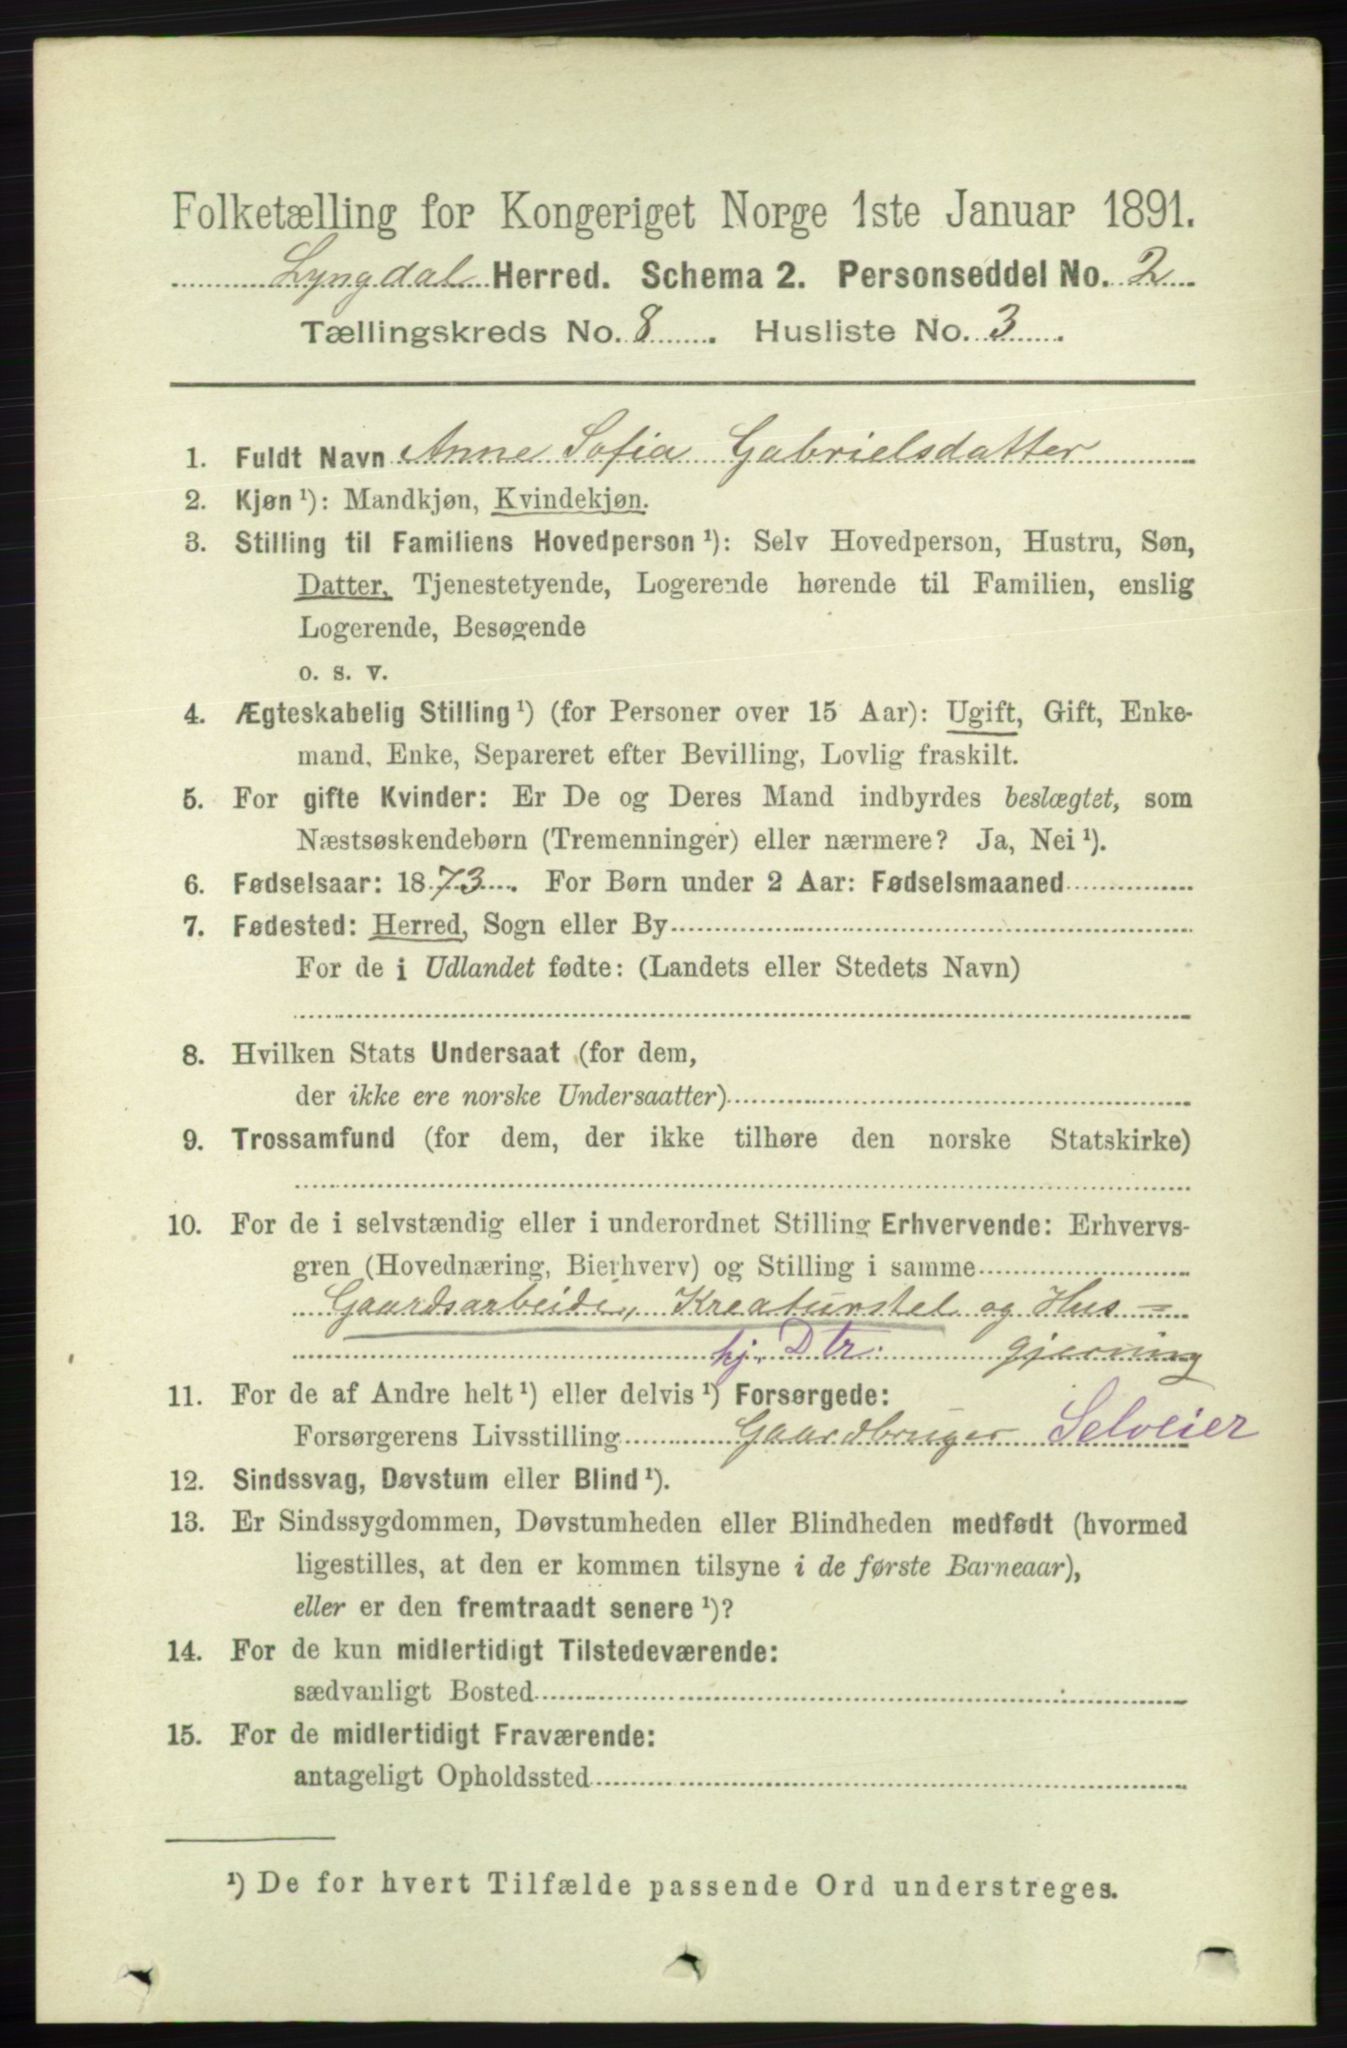 Folketælling for Kongeriget Norge 1ste Januar 1891.
Lyngdal Herred. Schema 2. Personseddel No. 2
Tællingskreds No. 8. Husliste No. 3.
1. Fuldt Navn Anne Sofia Gabrielsdatter
2. Kjøn ¹): Mandkjøn, Kvindekjøn.
3. Stilling til Familiens Hovedperson ¹): Selv Hovedperson, Hustru, Søn,
Datter, Tjenestetyende, Logerende hørende til Familien, enslig
Logerende, Besøgende
o. s. v.
4. Ægteskabelig Stilling ¹) (for Personer over 15 Aar): Ugift, Gift, Enke-
mand, Enke, Separeret efter Bevilling, Lovlig fraskilt.
5. For gifte Kvinder: Er De og Deres Mand indbyrdes beslægtet, som
Næstsøskendebørn (Tremenninger) eller nærmere? Ja, Nei ¹).
6. Fødselsaar: 1873. For Børn under 2 Aar: Fødselsmaaned
7. Fødested: Herred, Sogn eller By
For de i Udlandet fødte: (Landets eller Stedets Navn)
8. Hvilken Stats Undersaat (for dem,
der ikke ere norske Undersaatter)
9. Trossamfund (for dem, der ikke tilhøre den norske Statskirke)
10. For de i selvstændig eller i underordnet Stilling Erhvervende: Erhvervs-
gren (Hovednæring, Bierhverv) og Stilling i samme
Gaardsarbeide, Kreaturstel og Hus=
hj. Dtr. gjerning
11. For de af Andre helt ¹) eller delvis ¹) Forsørgede:
Forsørgerens Livsstilling Gaardbruger Selveier
12. Sindssvag, Døvstum eller Blind ¹).
13. Er Sindssygdommen, Døvstumheden eller Blindheden medfødt (hvormed
ligestilles, at den er kommen tilsyne i de første Barneaar),
eller er den fremtraadt senere ¹)?
14. For de kun midlertidigt Tilstedeværende:
sædvanligt Bosted
15. For de midlertidigt Fraværende:
antageligt Opholdssted
¹) De for hvert Tilfælde passende Ord understreges.